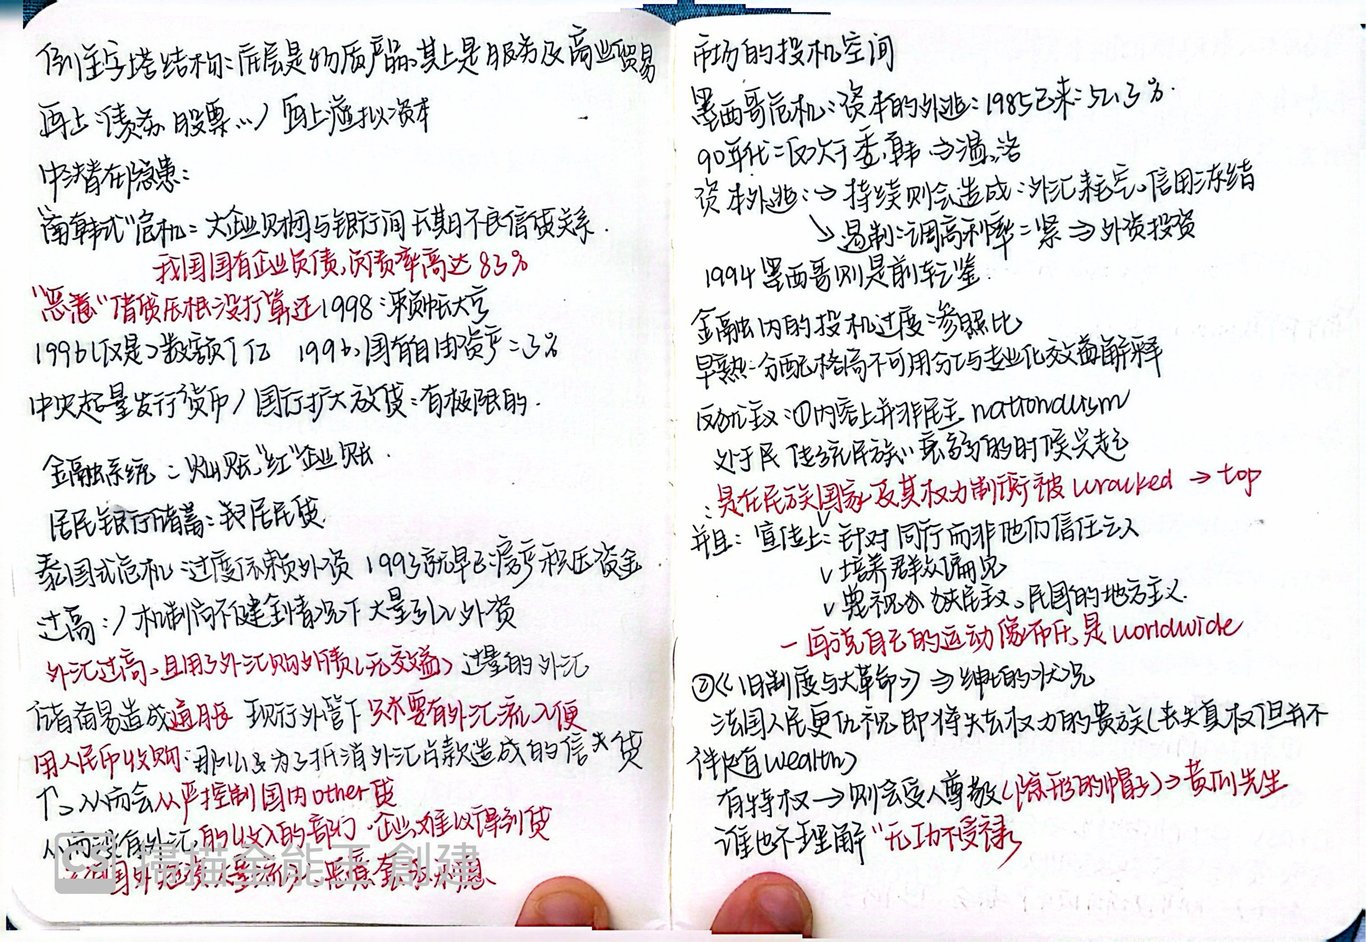 倒金字塔结构：底层是物质产品，其上是服务及商业贸易
再上：债券、股票…/再上虚拟资本
中潜在隐患：
"南韩式"危机：大企业财团与银行间长期不良信贷关系.
我国国有企业负债,负债率高达83%
"恶意"借贷压根没打算还1998：赖帐大亨
1996仅是 数额 1亿 1996、国有自由资产：3%
中央超量发行货币/国行扩大放贷：有极限的.
金融系统： "红"企业账.
居民银行储蓄： 居民贷.
泰国式危机：过度依赖外资 1993就早已：房产积压资金
过高：/机制尚不健全情况下大量引入外资
外汇过高、且用于外汇购外债(无效益) 过量的外汇
储备易造成通胀 现行外管下只要有外汇流入便
用人民币收购：那么 为了抵消外汇占款造成的信 贷
↑ 从而会从严控制国内other贷
从而没有外汇,的收入的部门、企业难以得到贷
掃描全能王 創建
市场的投机空间
墨西哥危机：资本的外逃：1985已来：52.3%.
90年代：仅次于委.韩
资本外逃：→ 持续则会造成：外汇耗完、信用冻结
遏制：调高利率：紧 → 外资投资
1994墨西哥则是前车之鉴.
金融内的投机过度：参照比
早熟：分配格局不可用分工与专业化效益解释
反犹主义：①内容上并非民主 nationalism
处于民 传统民族 衰落的时候兴起
：是在民族国家及其权力制衡被 wracked → top
并且：宣传上：针对同行而非他们信任之人
∨ 培养群众偏见
∨ 蔑视 民主义、民国的地方主义.
一再说自己的运动像 ，是 worldwide
②《旧制度与大革命》⇒ 绅士的状况
法国人民更仇视即将失去权力的贵族(丧失真权但并不
伴随有wealth)
有特权 → 则会受人尊敬(隐形的帽子) → 黄瓜先生
谁也不理解"无功不受禄"